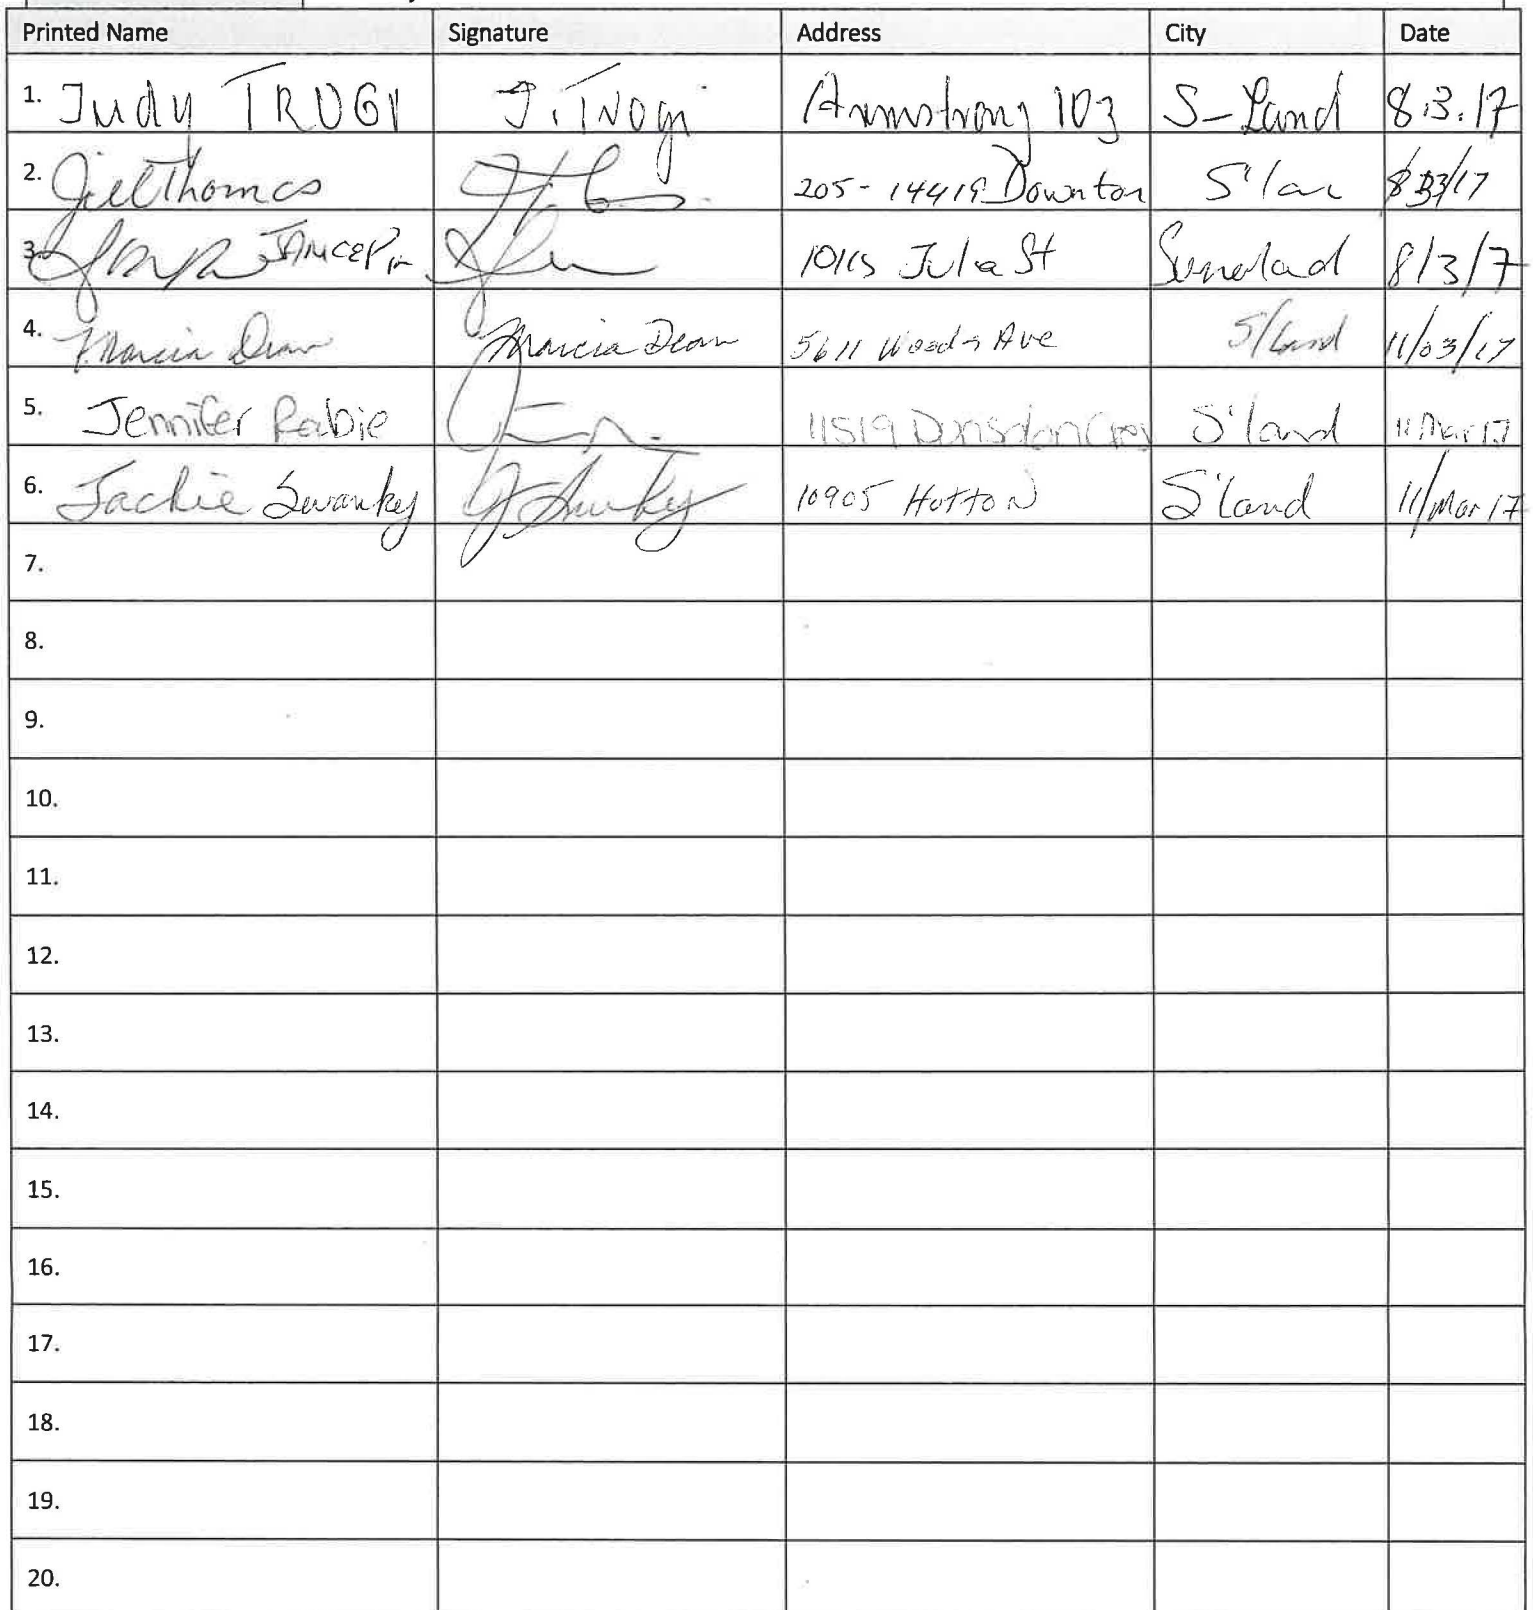 Printed Name Signature Address City Date
1. Judy TRUGI J. Trogi Armstrong 103 S-Land 8.3.17
2. Jill Thomas 205-14419 Downton S'lan 8/3/17
3. JANICE P 10115 Julia St 8/3/7
4. Marcia Dean Marcia Dean 5611 Woods Ave S/land 11/03/17
5. Jennifer Rabie 11519 Dunsdon Cres S'land 11 Mar 17
6. Jackie Swanky 10905 Hutton S'land 11/Mar 17
7.
8.
9.
10.
11.
12.
13.
14.
15.
16.
17.
18.
19.
20.